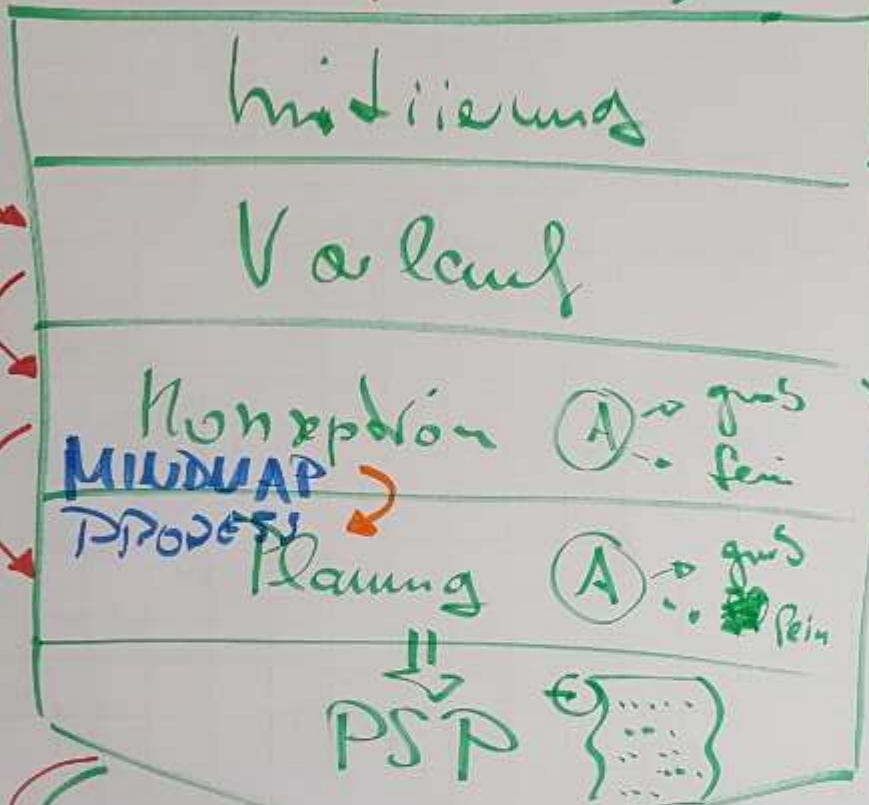 Initiierung
Vorlauf
Konzeption A grob
fein
MINDMAP
PROZESS
Planung A grob
fein
PSP